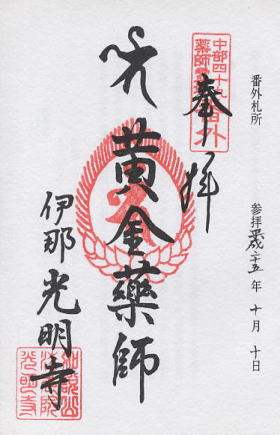 番外札所
参拝平成二十五年十月十日
奉拝
中部四十九
薬師霊場
番外
黄金薬師
伊那光明寺